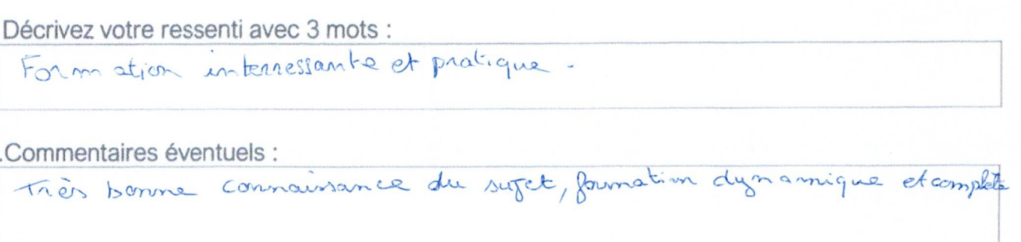 Décrivez votre ressenti avec 3 mots :
Formation interressante et pratique.
Commentaires éventuels :
Très bonne connaissance du sujet, formation dynamique et complète